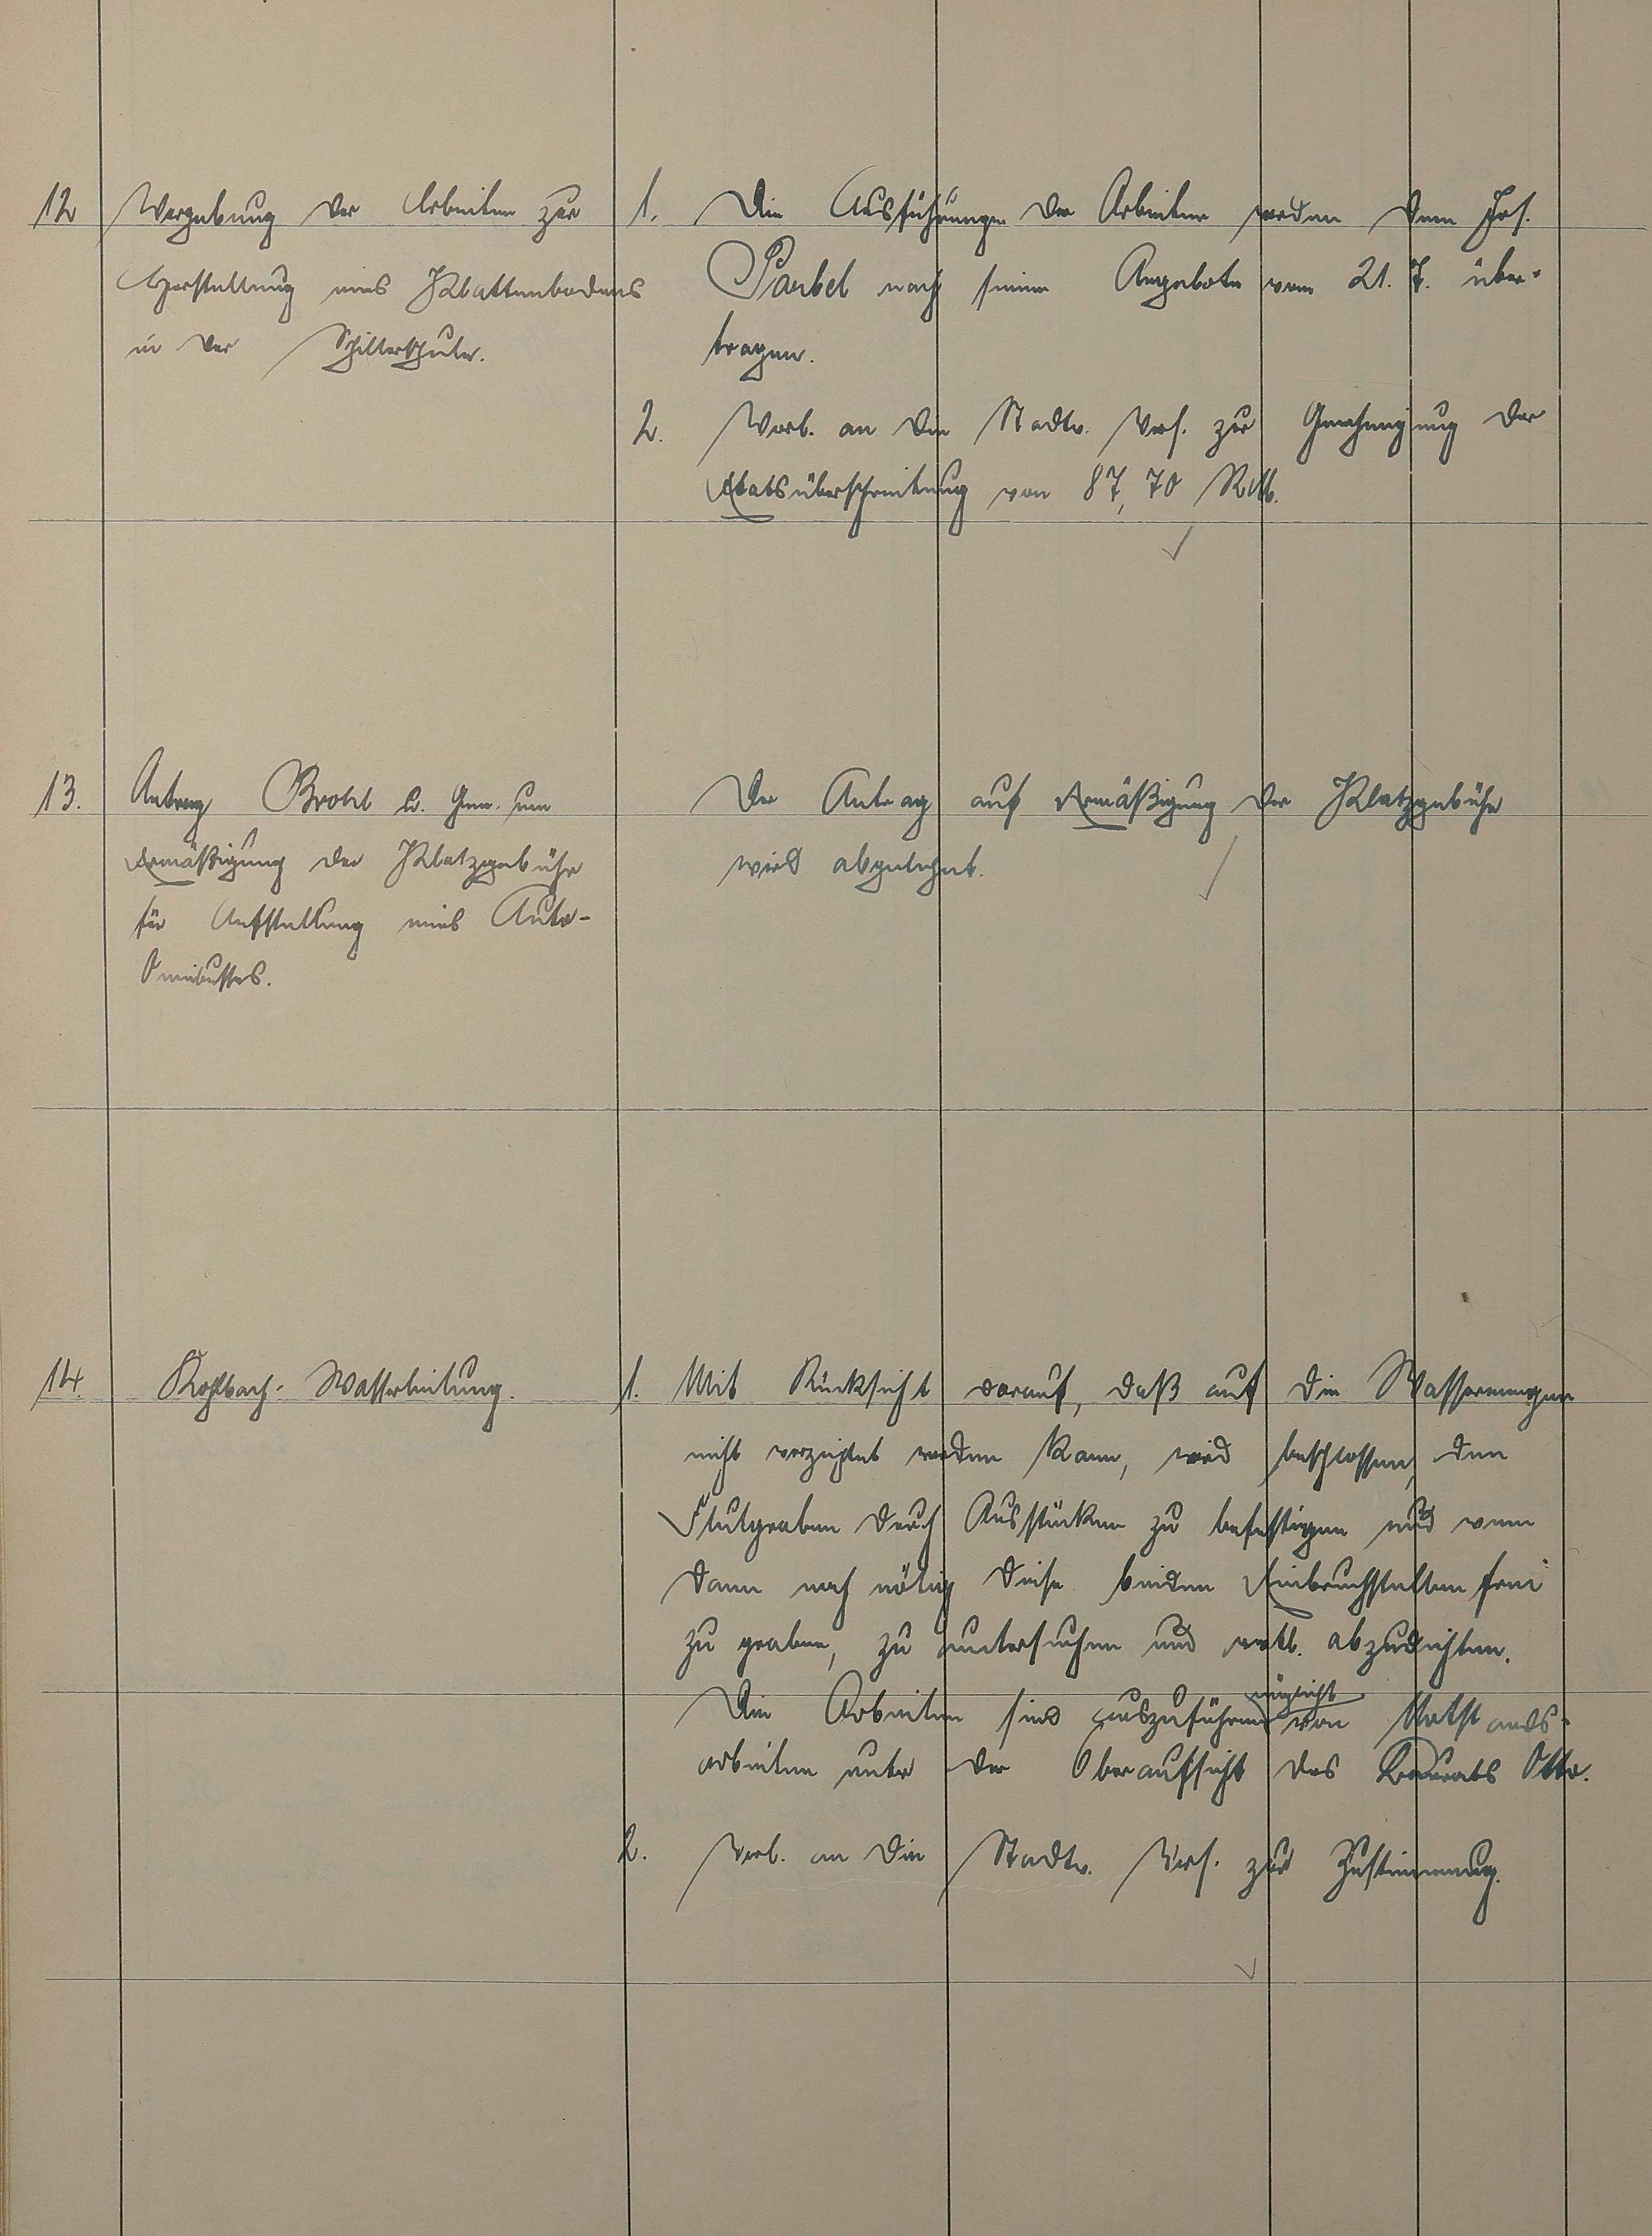 12 Vergebung der Arbeiten zur
Herstellung eines Plattenbodens
in der Schillerschule.
1. Die Ausführungen der Arbeiten werden dem Jos.
Parbel nach seinem Angebote vom 21. 7. über-
tragen.
2. Vorl. an die Stadtv. Vers. zur Genehmigung der
Etatsüberschreitung von 87,70 RM.
13. Antrag Brohl u. Gen. um
Ermäßigung der Platzgebühr
für Aufstellung eines Auto-
Omnibusses.
Der Antrag auf Ermäßigung der Platzgebühr
wird abgelehnt.
14. Kohlbach-Wasserleitung.
1. Mit Rücksicht darauf, daß auf die Wassermengen
nicht verzichtet werden kann, wird beschlossen, den
Flutgraben durch Ausstücken zu befestigen und wenn
dann noch nötig diese beiden Einbruchstellen frei
zu graben, zu untersuchen und evtl. abzudichten.
Die Arbeiten sind möglichst auszuführen von Notstands-
arbeiten unter der Oberaufsicht des Baurats Otto.
2. Vorl. an die Stadtv. Vers. zur Zustimmung.